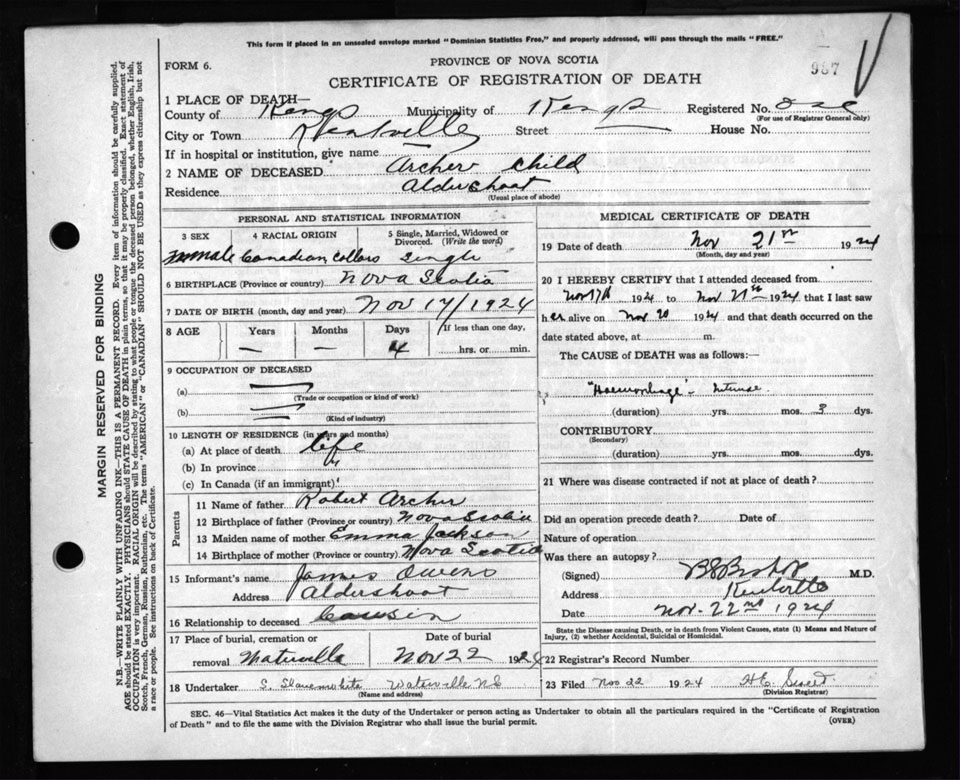 This form if placed in an unsealed envelope marked "Dominion Statistics Free," and properly addressed, will pass through the mails "FREE."
FORM 6.
PROVINCE OF NOVA SCOTIA
987
CERTIFICATE OF REGISTRATION OF DEATH
1 PLACE OF DEATH—
County of Kings Municipality of Kings Registered No. one
(For use of Registrar General only)
City or Town Kentville Street House No.
If in hospital or institution, give name
2 NAME OF DECEASED Archer Child
Residence Aldershoat
(Usual place of abode)
PERSONAL AND STATISTICAL INFORMATION
3 SEX 4 RACIAL ORIGIN 5 Single, Married, Widowed or Divorced. (Write the word)
Canadian Single
6 BIRTHPLACE (Province or country) Nova Scotia
7 DATE OF BIRTH (month, day and year) Nov 17/1924
8 AGE Years Months Days If less than one day,
— — 4 hrs. or min.
9 OCCUPATION OF DECEASED
(a)
(Trade or occupation or kind of work)
(b)
(Kind of industry)
10 LENGTH OF RESIDENCE (in years and months)
(a) At place of death life
(b) In province "
(c) In Canada (if an immigrant)
Parents
11 Name of father Robert Archer
12 Birthplace of father (Province or country) Nova Scotia
13 Maiden name of mother Emma Jackson
14 Birthplace of mother (Province or country) Nova Scotia
15 Informant's name James Owens
Address Aldershoat
16 Relationship to deceased Cousin
17 Place of burial, cremation or removal Waterville
Date of burial Nov 22 1924
18 Undertaker S. Waterville N.S
(Name and address)
MEDICAL CERTIFICATE OF DEATH
19 Date of death Nov 21st 1924
(Month, day and year)
20 I HEREBY CERTIFY that I attended deceased from
Nov 17th 1924 to Nov 21st 1924 that I last saw
her alive on Nov 20 1924 and that death occurred on the
date stated above, at m.
The CAUSE of DEATH was as follows:
"Haemorrhage" - Intense
(duration) yrs. mos. 3 dys.
CONTRIBUTORY
(Secondary)
(duration) yrs. mos. dys.
21 Where was disease contracted if not at place of death?
Did an operation precede death? Date of
Nature of operation
Was there an autopsy?
(Signed) B S Bishop M.D.
Address Kentville
Date Nov. 22nd 1924
State the Disease causing Death, or in death from Violent Causes, state (1) Means and Nature of
Injury, (2) whether Accidental, Suicidal or Homicidal.
22 Registrar's Record Number
23 Filed Nov 22 1924 H.E.
(Division Registrar)
SEC. 46—Vital Statistics Act makes it the duty of the Undertaker or person acting as Undertaker to obtain all the particulars required in the "Certificate of Registration
of Death" and to file the same with the Division Registrar who shall issue the burial permit.
(OVER)
MARGIN RESERVED FOR BINDING
N.B.—WRITE PLAINLY WITH UNFADING INK—THIS IS A PERMANENT RECORD. Every item of information should be carefully supplied.
AGE should be stated EXACTLY. PHYSICIANS should STATE CAUSE OF DEATH in plain terms, so that it may be properly classified. Exact statement of
OCCUPATION is very important. RACIAL ORIGIN will be described by stating to what people or tongue the deceased person belonged, whether English, Irish,
Scotch, French, German, Russian, Ruthenian, etc. The terms "AMERICAN" or "CANADIAN" SHOULD NOT BE USED as they express citizenship but not
a race or people. See instructions on back of Certificate.